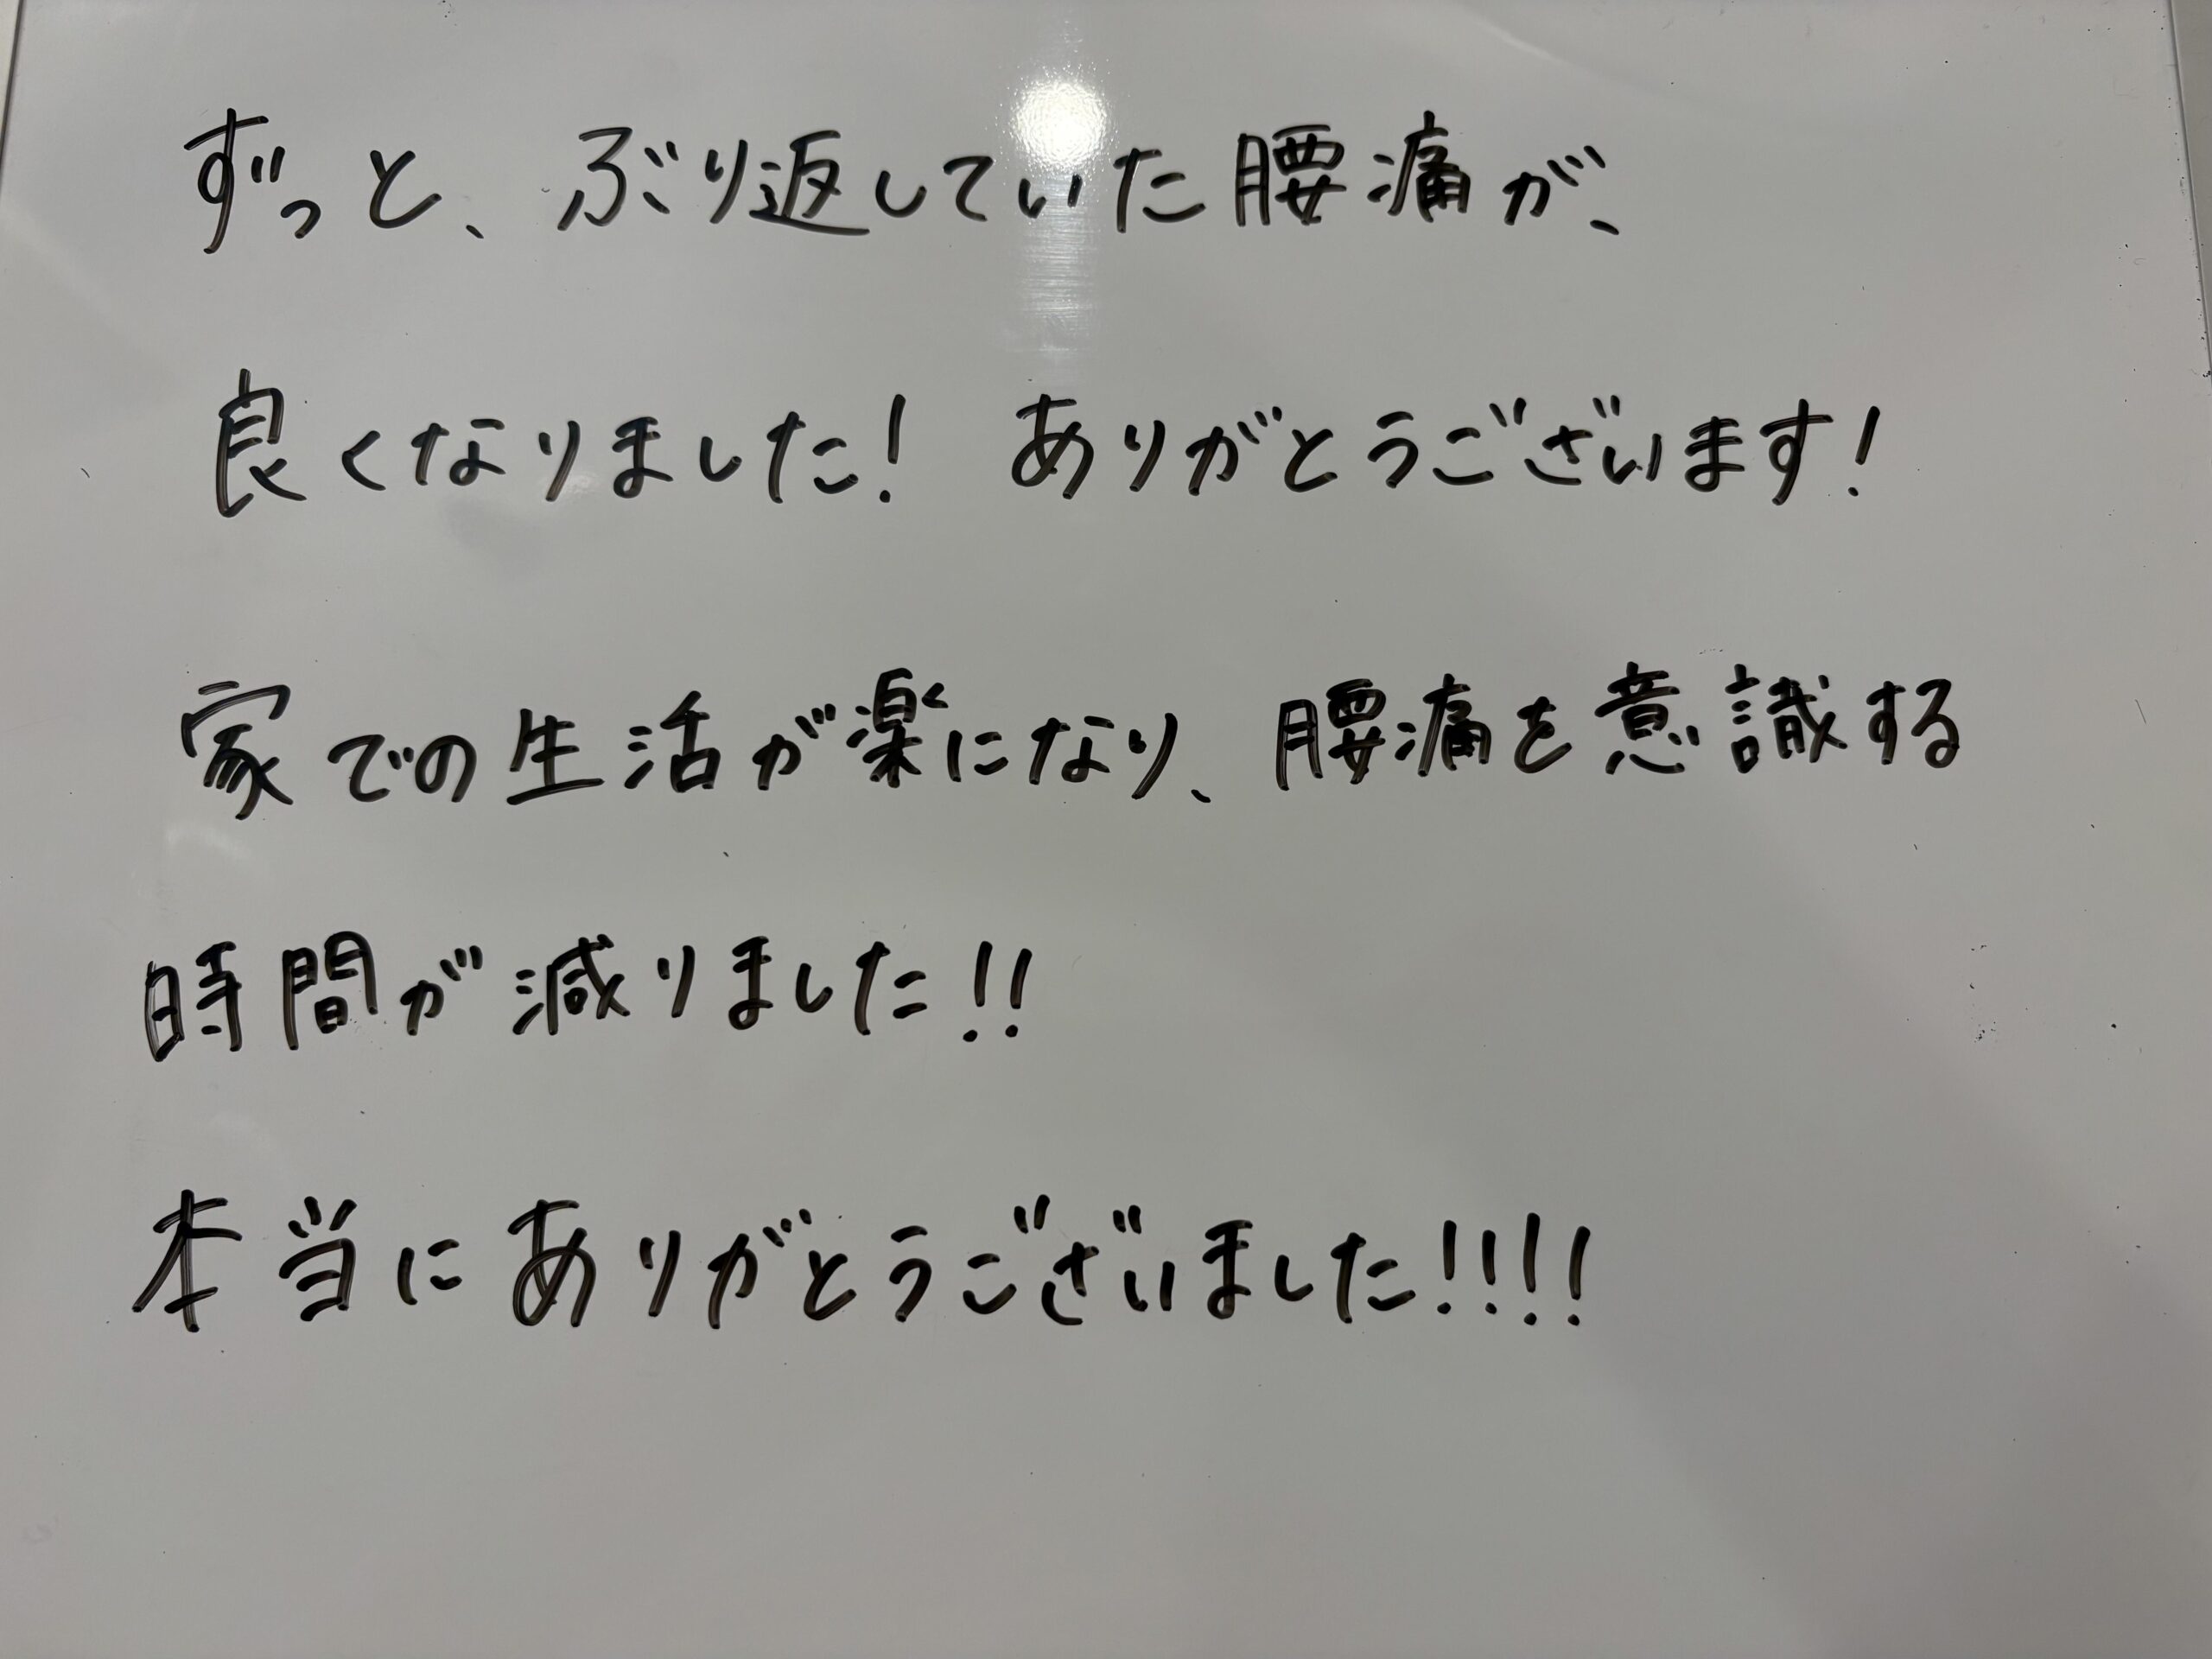 ずっと、ぶり返していた腰痛が、
良くなりました！　ありがとうございます！
家での生活が楽になり、腰痛を意識する
時間が減りました！！
本当にありがとうございました！！！！